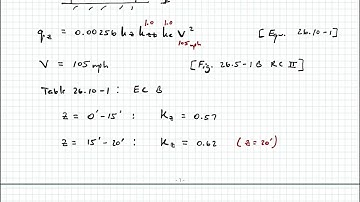 1.0 1.0
q_z = 0.00256 k_z k_zt k_e V² [Eqn. 26.10-1]
105 mph
V = 105 mph [Fig. 26.5-1 B RC II]
Table 26.10-1 : EC B
z = 0'-15' : k_z = 0.57
z = 15'-20' : k_z = 0.62 (z=20')
-1-